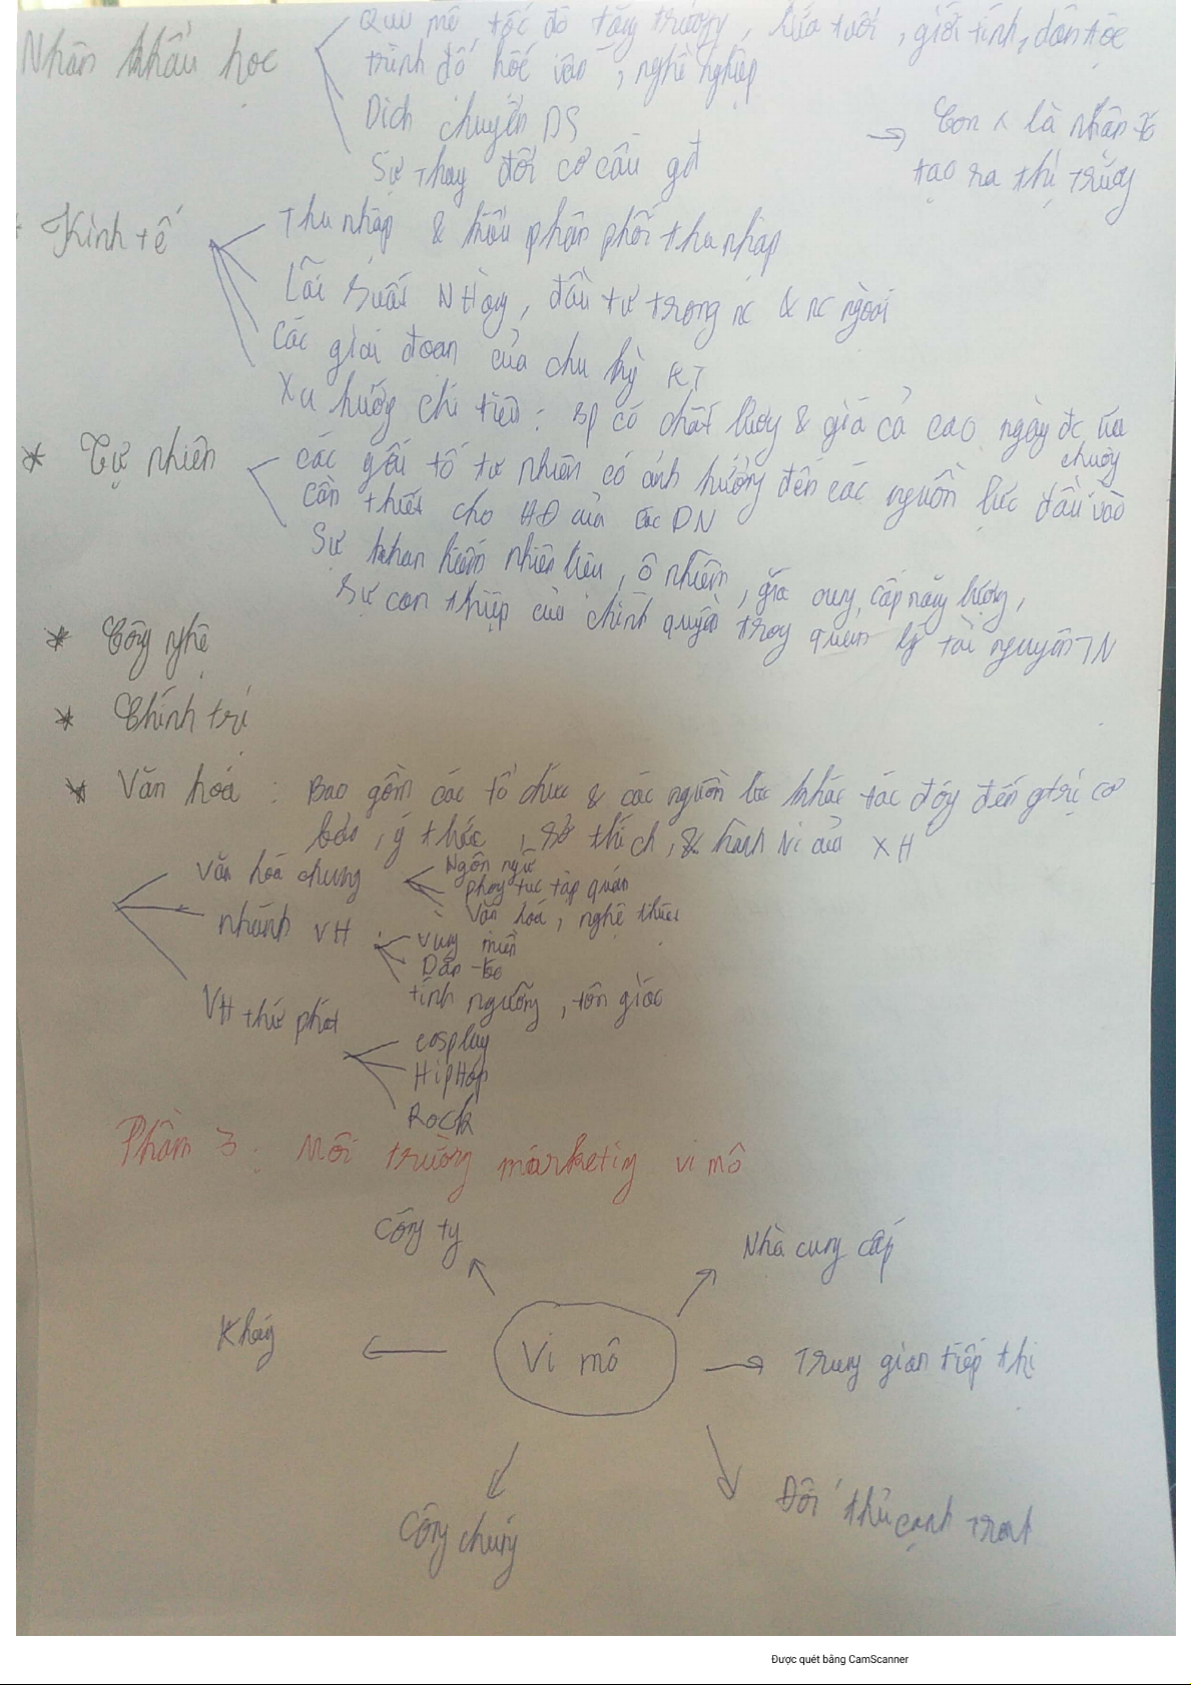 Nhân khẩu học
Quy mô, tốc độ tăng trưởng, lứa tuổi, giới tính, dân tộc
trình độ học vấn, nghề nghiệp
Dịch chuyển DS
Sự thay đổi cơ cấu gđ
→ Con × là nhân tố
tạo ra thị trường
Kinh tế
Thu nhập & kiểu phân phối thu nhập
Lãi suất NHàng, đầu tư trong nc & nc ngoài
Các giai đoạn của chu kỳ KT
Xu hướng chi tiêu: sp có chất lượng & giá cả cao ngày đc ưa
chuộng
* Tự nhiên
các yếu tố tự nhiên có ảnh hưởng đến các nguồn lực đầu vào
cần thiết cho HĐ của các DN
Sự khan hiếm nhiên liệu, ô nhiễm, giá cung cấp năng lượng,
sự can thiệp của chính quyền trong quản lý tài nguyên TN
* Công nghệ
* Chính trị
* Văn hoá: Bao gồm các tổ chức & các nguồn lực khác tác động đến gtrị cơ
bản, ý thức, sở thích, & hành vi của XH
Văn hoá chung
Ngôn ngữ
phong tục tập quán
Văn hoá, nghệ thuật
nhánh VH
Vùng miền
Dân tộc
tính ngưỡng, tôn giáo
VH thứ phát
cosplay
HipHop
Rock
Phần 3: Môi trường marketing vi mô
Công ty
Nhà cung cấp
Khág
Vi mô
Trung gian tiếp thị
Công chúng
Đối thủ cạnh tranh
Được quét bằng CamScanner